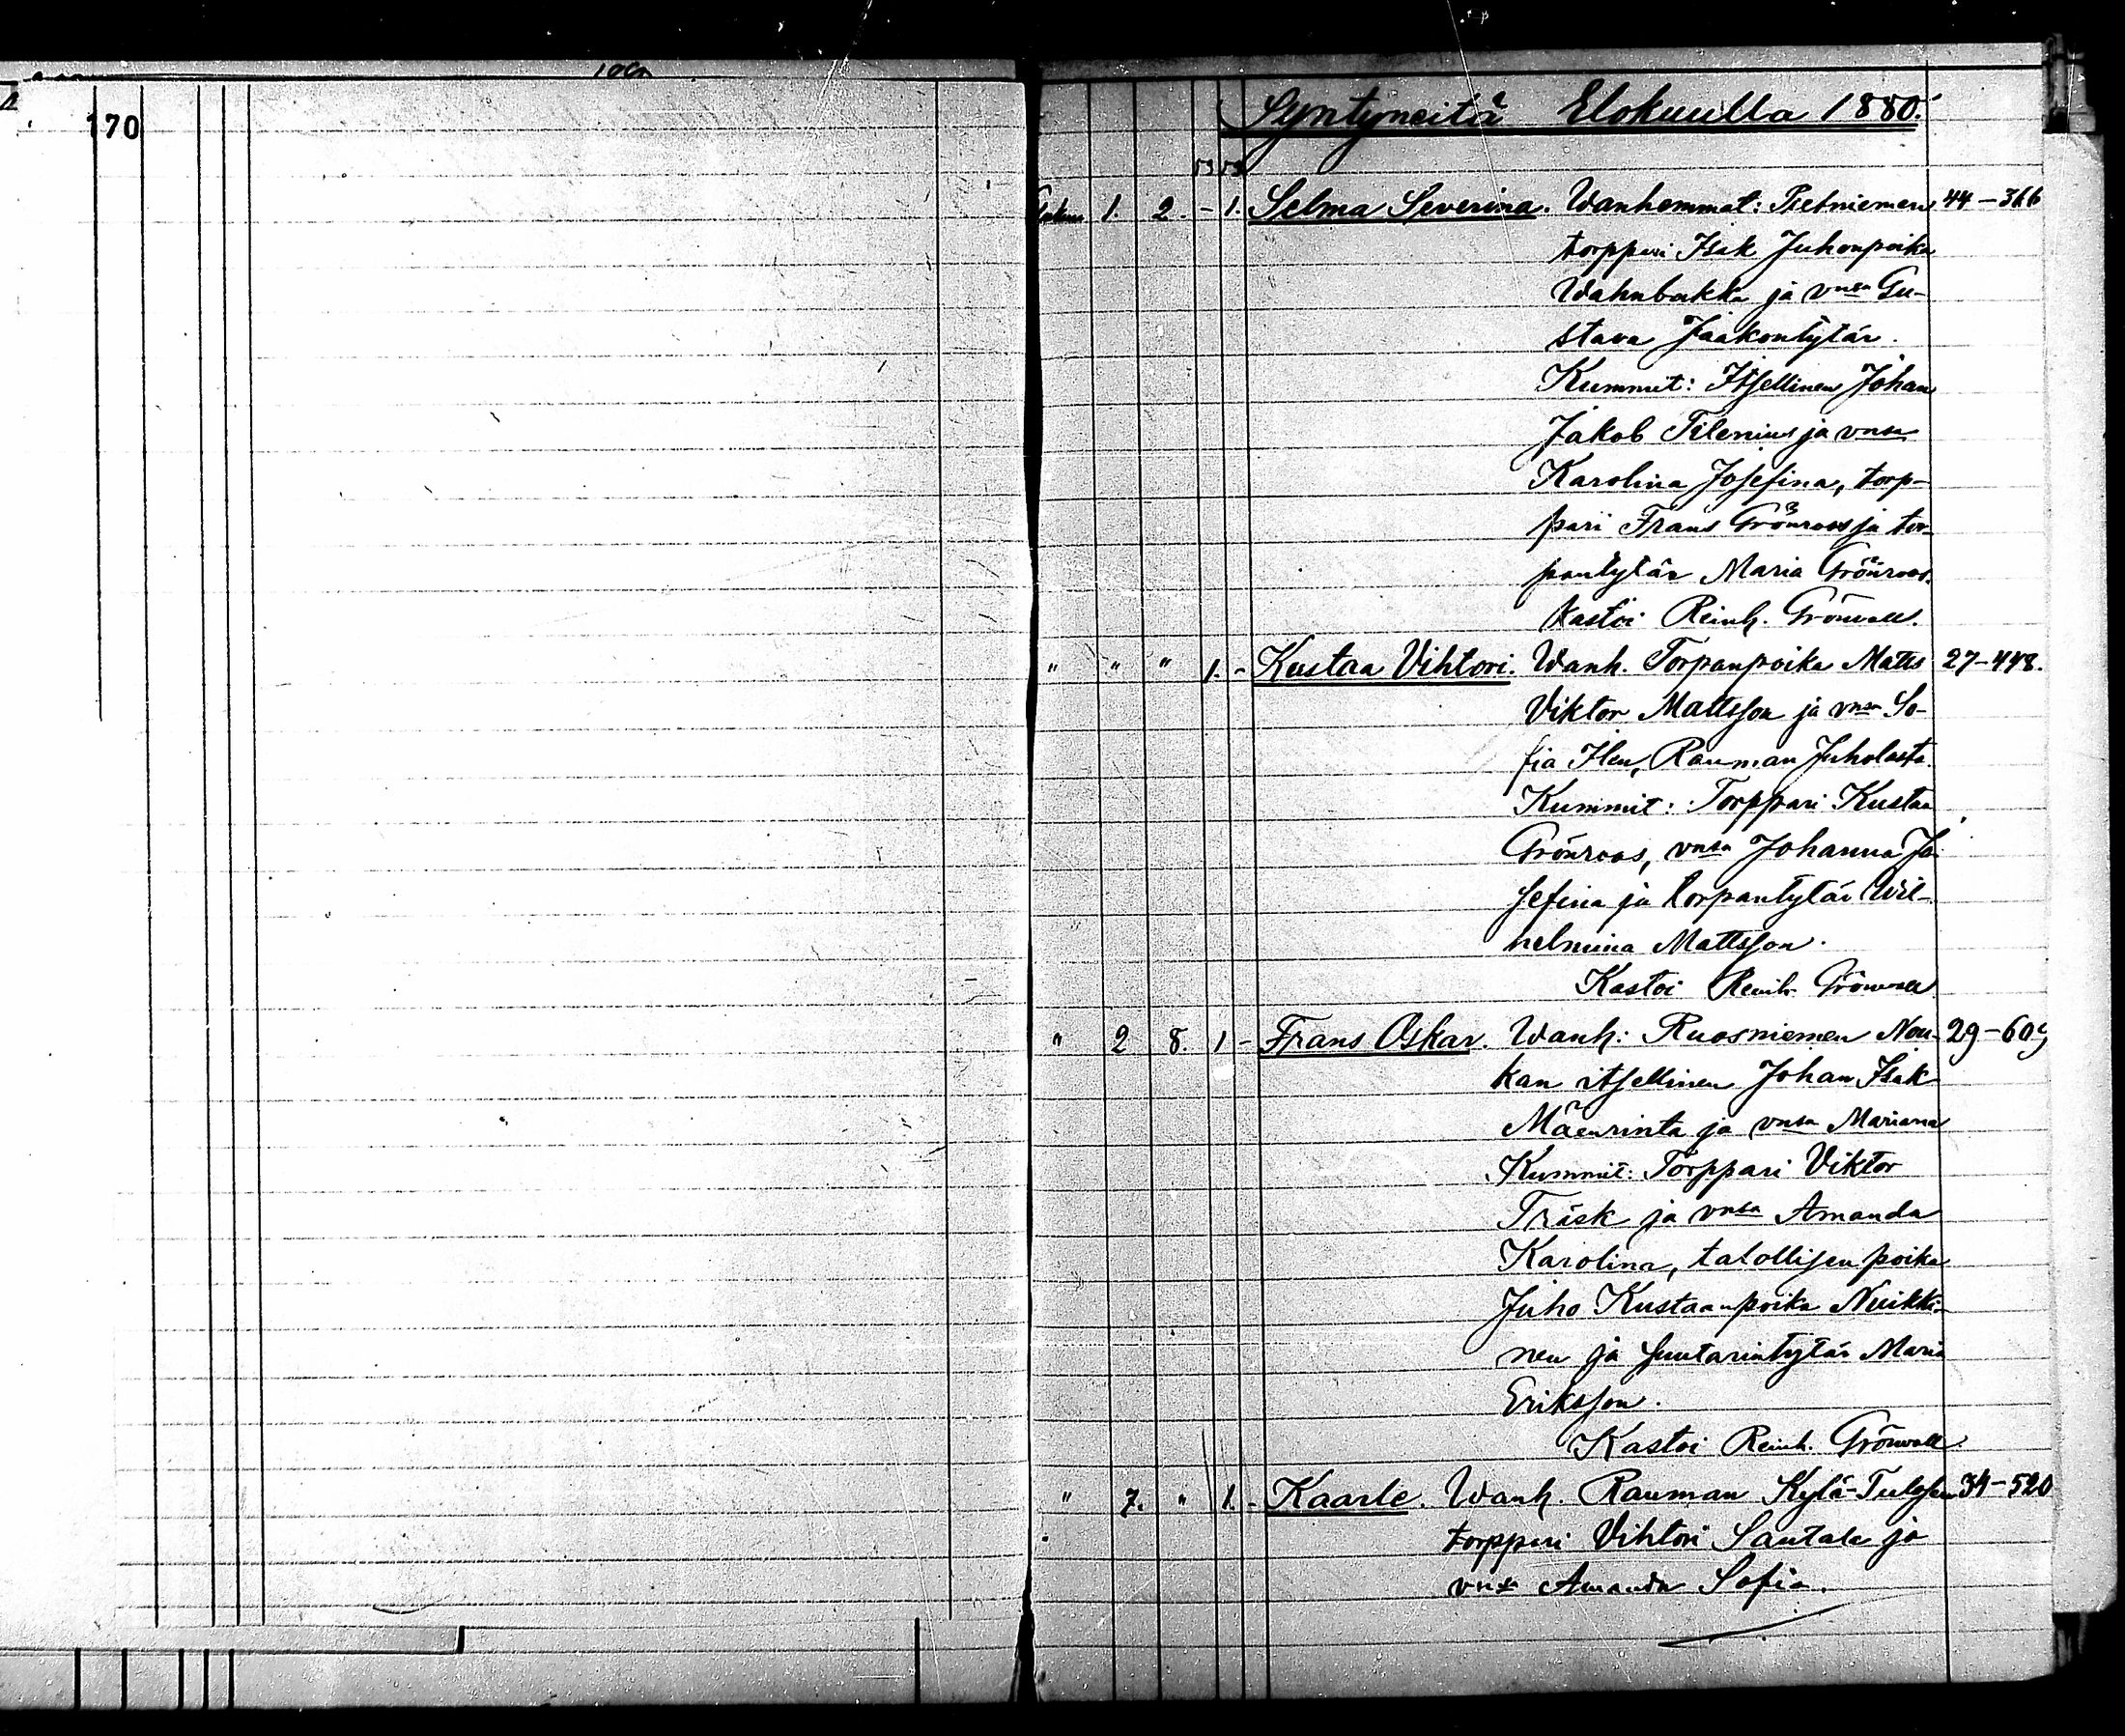 170
Syntyneitä Elokuulla 1880.
1. 2. - 1. Selma Severina. Wanhemmat: 44-366
torppari Isak Juhonpoika
ja vnsa Gu-
stava Jaakontytär.
Kummit: Itsellinen Johan
Jakob Filenius ja vnsa
Karolina Josefina, torp-
pari Frans Grönroos ja tor-
pantytär Maria Grönroos.
Kastoi Reinh. Grönvall.
" " " 1. - Kustaa Vihtori. Wanh. Torpanpoika Matts 27-448.
Viktor Mattsson ja vnsa So-
fia Rauman Juholasta.
Kummit: Torppari Kustaa
Grönroos, vnsa Johanna Jo-
sefina ja torpantytär Wil-
helmina Mattsson.
Kastoi Reinh. Grönvall
" 2 8. 1 - Frans Oskar. Wanh: Ruosniemen Nou- 29-609
kan itsellinen Johan Isak
Mäenrinta ja vnsa Mariana
Kummit: Torppari Viktor
Träsk ja vnsa Amanda
Karolina, talollisen poika
Juho Kustaanpoika Nuikki-
nen ja suutarintytär Maria
Eriksson.
Kastoi Reinh. Grönvall.
" 7. " 1. - Kaarle. Wanh. Rauman Kylä- 34-520
torppari Vihtori Santala ja
vnsa Amanda Sofia.